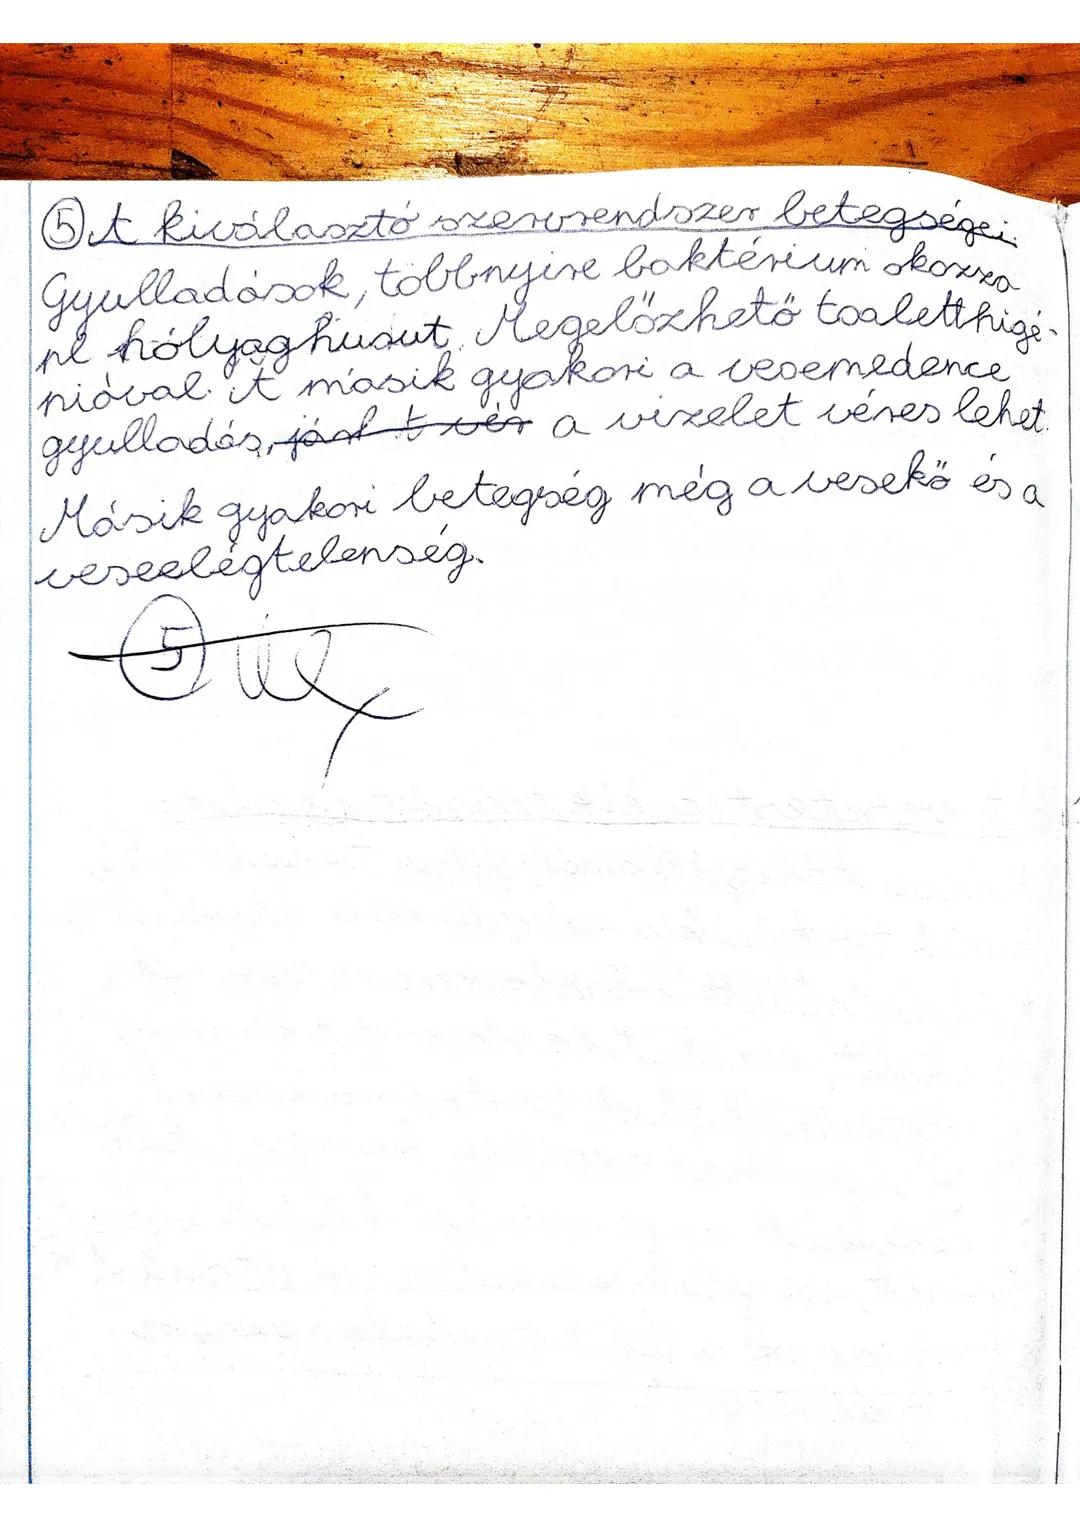 ⑤ A kiválasztó szervrendszer betegségei:
Gyulladások, többnyire baktérium okozza
pl hólyaghurut. Megelőzhető toaletthigé-
niával. A másik gyakori a vesemedence
gyulladás, járhat vér a vizelet véres lehet.
Másik gyakori betegség még a vesekő és a
veseelégtelenség.
⑤